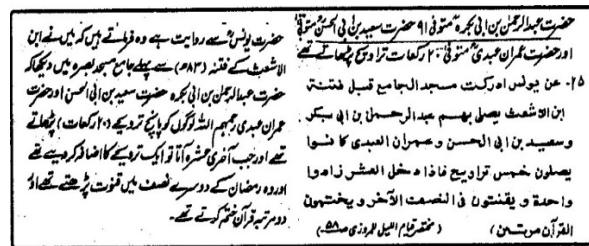 حضرت عبدالرحمٰن بن ابی بکرہ متوفی ۹۱ حضرت سعید بن ابی الحسن متوفی
اور حضرت عمران عبدی متوفی ۲۰ رکعات تراویح پڑھاتے تھے
۲۵۔ عن یونس ادرکت مسجد الجامع قبل فتنة
ابن الاشعث یصلی بهم عبد الرحمن بن ابی بکر
وسعید بن ابی الحسن وعمران العبدی کانوا
یصلون خمس تراویح فاذا دخل العشر زادوا
واحدة ویقنتون فی النصف الآخر ویختمون
القرآن مرتین (مختصر قیام اللیل للمروزی ص۵۸)
حضرت یونس سے روایت ہے وہ فرماتے ہیں کہ میں نے ابن
الاشعث کے فتنہ (۸۳ھ) سے پہلے جامع مسجد بصرہ میں دیکھا کہ
حضرت عبدالرحمٰن بن ابی بکرہ حضرت سعید بن ابی الحسن اور حضرت
عمران عبدی رحمہم اللہ لوگوں کو پانچ ترویحے (۲۰ رکعات) پڑھاتے
تھے اور جب آخری عشرہ آتا تو ایک ترویحے کا اضافہ کر دیتے تھے
اور وہ رمضان کے دوسرے نصف میں قنوت پڑھتے تھے اور
دو مرتبہ قرآن ختم کرتے تھے۔